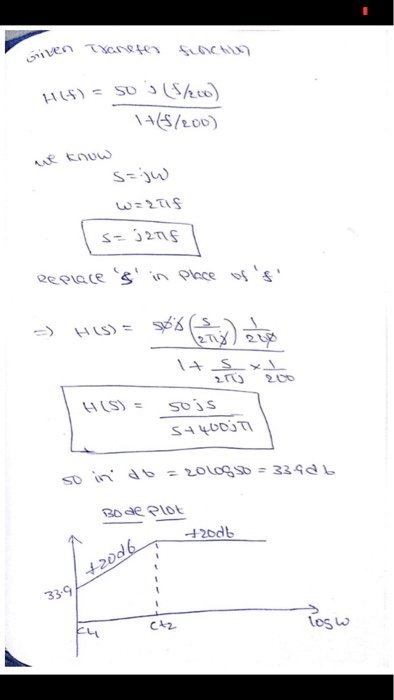 Given Transfer function
H(f) = 50 j (f/200)
1+(f/200)
we know
s=jw
w=2πf
s= j2πf
Replace 's' in place of 'f'
=) H(s) = 50j (s/2πj) 1/200
1+ s/2πj × 1/200
H(s) = 50js
s+400jπ
50 in db = 20log50 = 33.9db
Bode plot
+20db
+20db
33.9
C4
Ct2
log w